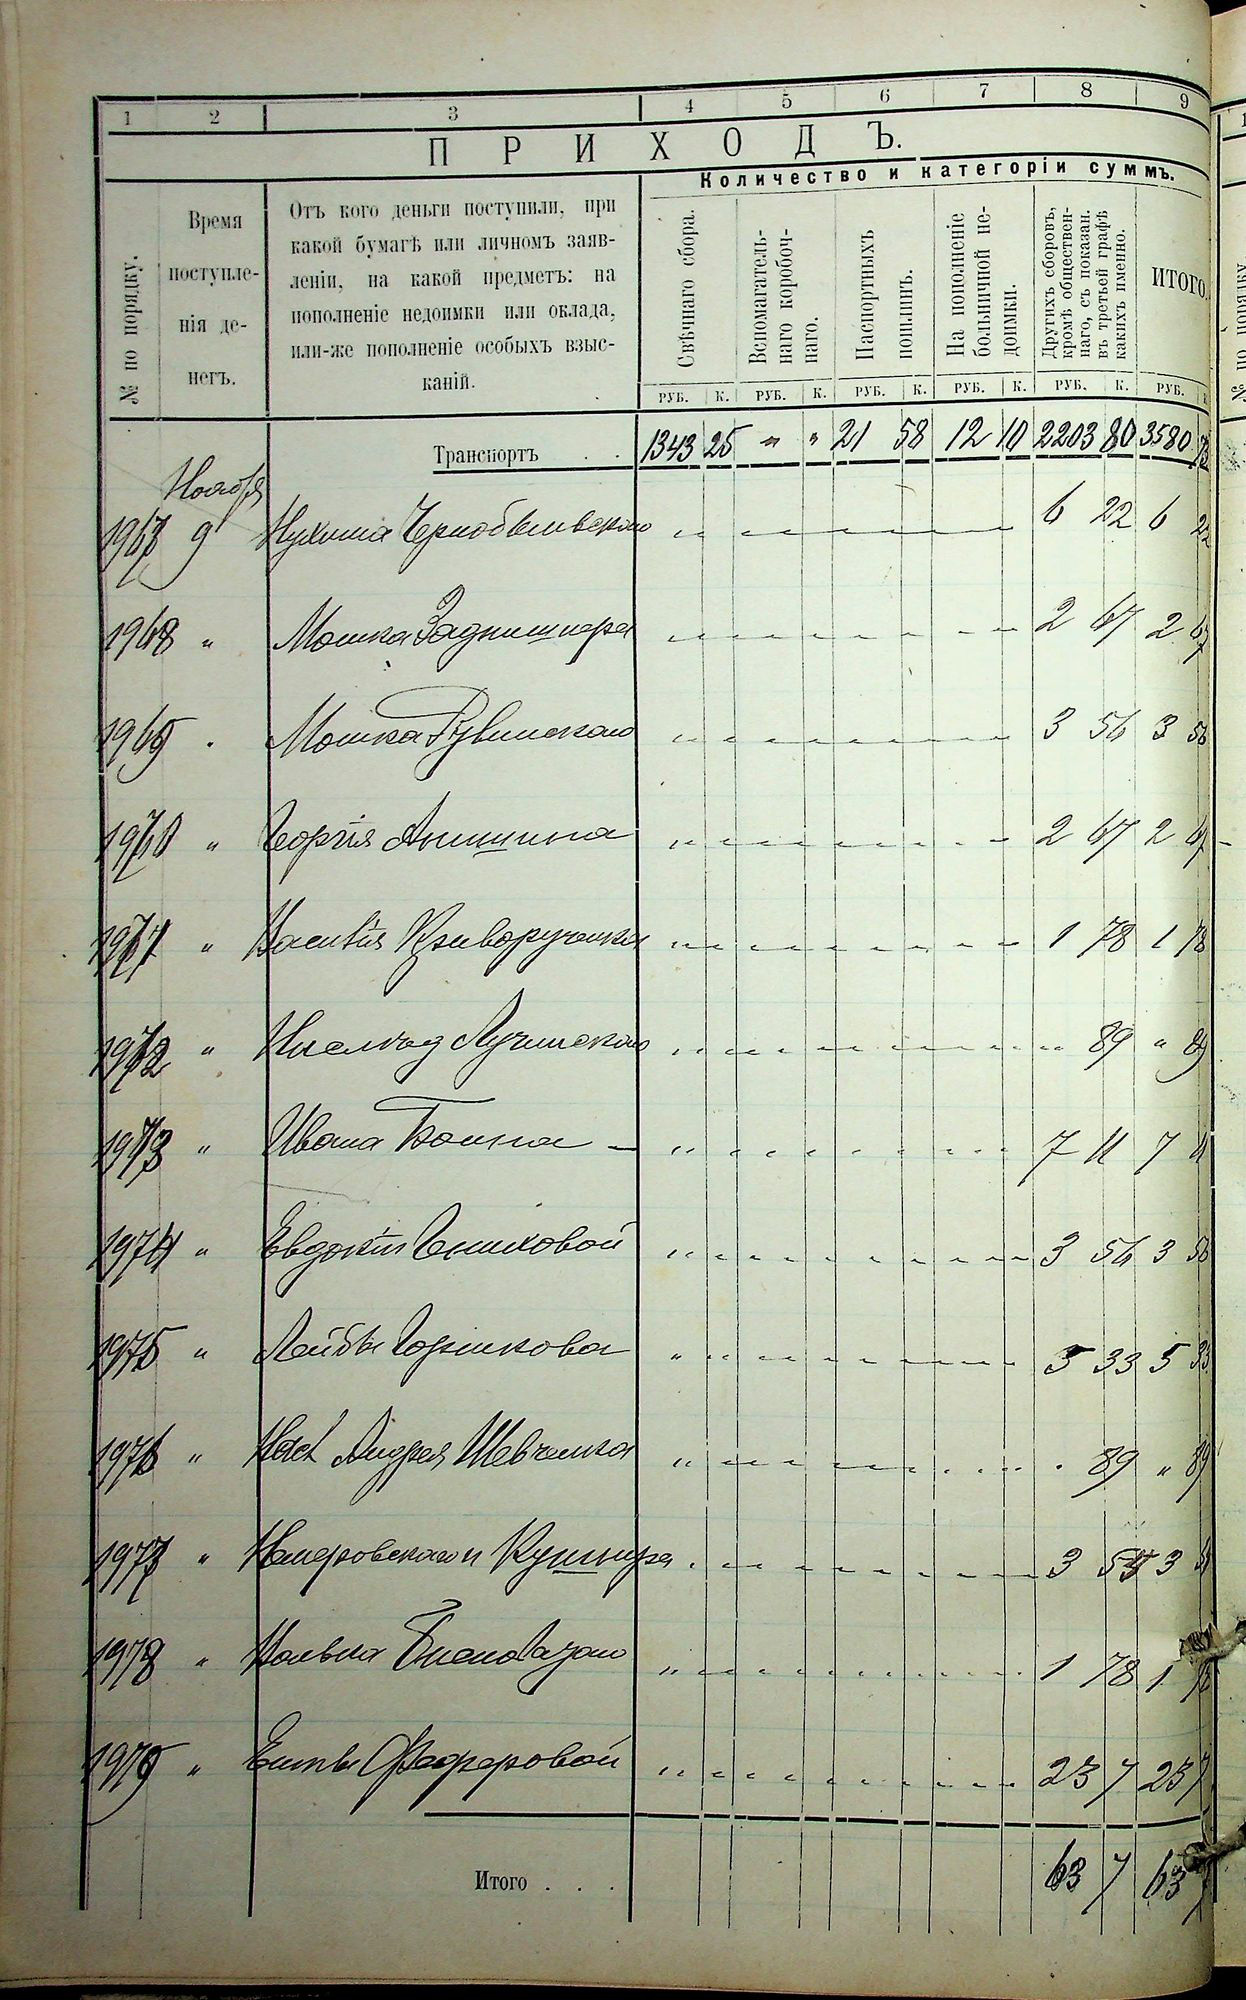 1 2 3 4 5 6 7 8 9
ПРИХОДЪ.
Количество и категоріи суммъ.
№ по порядку.
Время поступле-
нія де-
негъ.
Отъ кого деньги поступили, при
какой бумагѣ или личномъ заяв-
леніи, на какой предметъ: на
пополненіе недоимки или оклада,
или-же пополненіе особыхъ взыс-
каній.
Свѣчнаго сбора.
Вспомагатель-
наго коробоч-
наго.
Паспортныхъ
пошлинъ.
На пополненіе
больничной не-
доимки.
Другихъ сборовъ,
кромѣ обществен-
наго, съ показан.
въ третьей графѣ
какихъ именно.
ИТОГО.
РУБ. К. РУБ. К. РУБ. К. РУБ. К. РУБ. К. РУБ.
Транспортъ . . 1343 25 " " 21 58 12 10 2203 80 3580 73
Ноября
1967 9 Нухима Чернобыльскаго 6 22 6 22
1968 " Мошка Заднишпера 2 67 2 67
1969 " Мошка Рувинскаго 3 56 3 56
1970 " Георгія Аншина 2 67 2 67
1971 " Василія Криворученка 1 78 1 78
1972 " Лучинскаго " 89 " 89
1973 " Ивана Боика 7 11 7 11
1974 " Евдокіи 3 56 3 56
1975 " Лейбы Горшкова 5 33 5 33
1976 " Насл Андрея Шевченка " 89 " 89
1977 " Кушнира 3 3
1978 " 1 78 1 78
1979 " Фаферовой 23 7 23 7
Итого . . . 63 7 63 7
№ по порядку